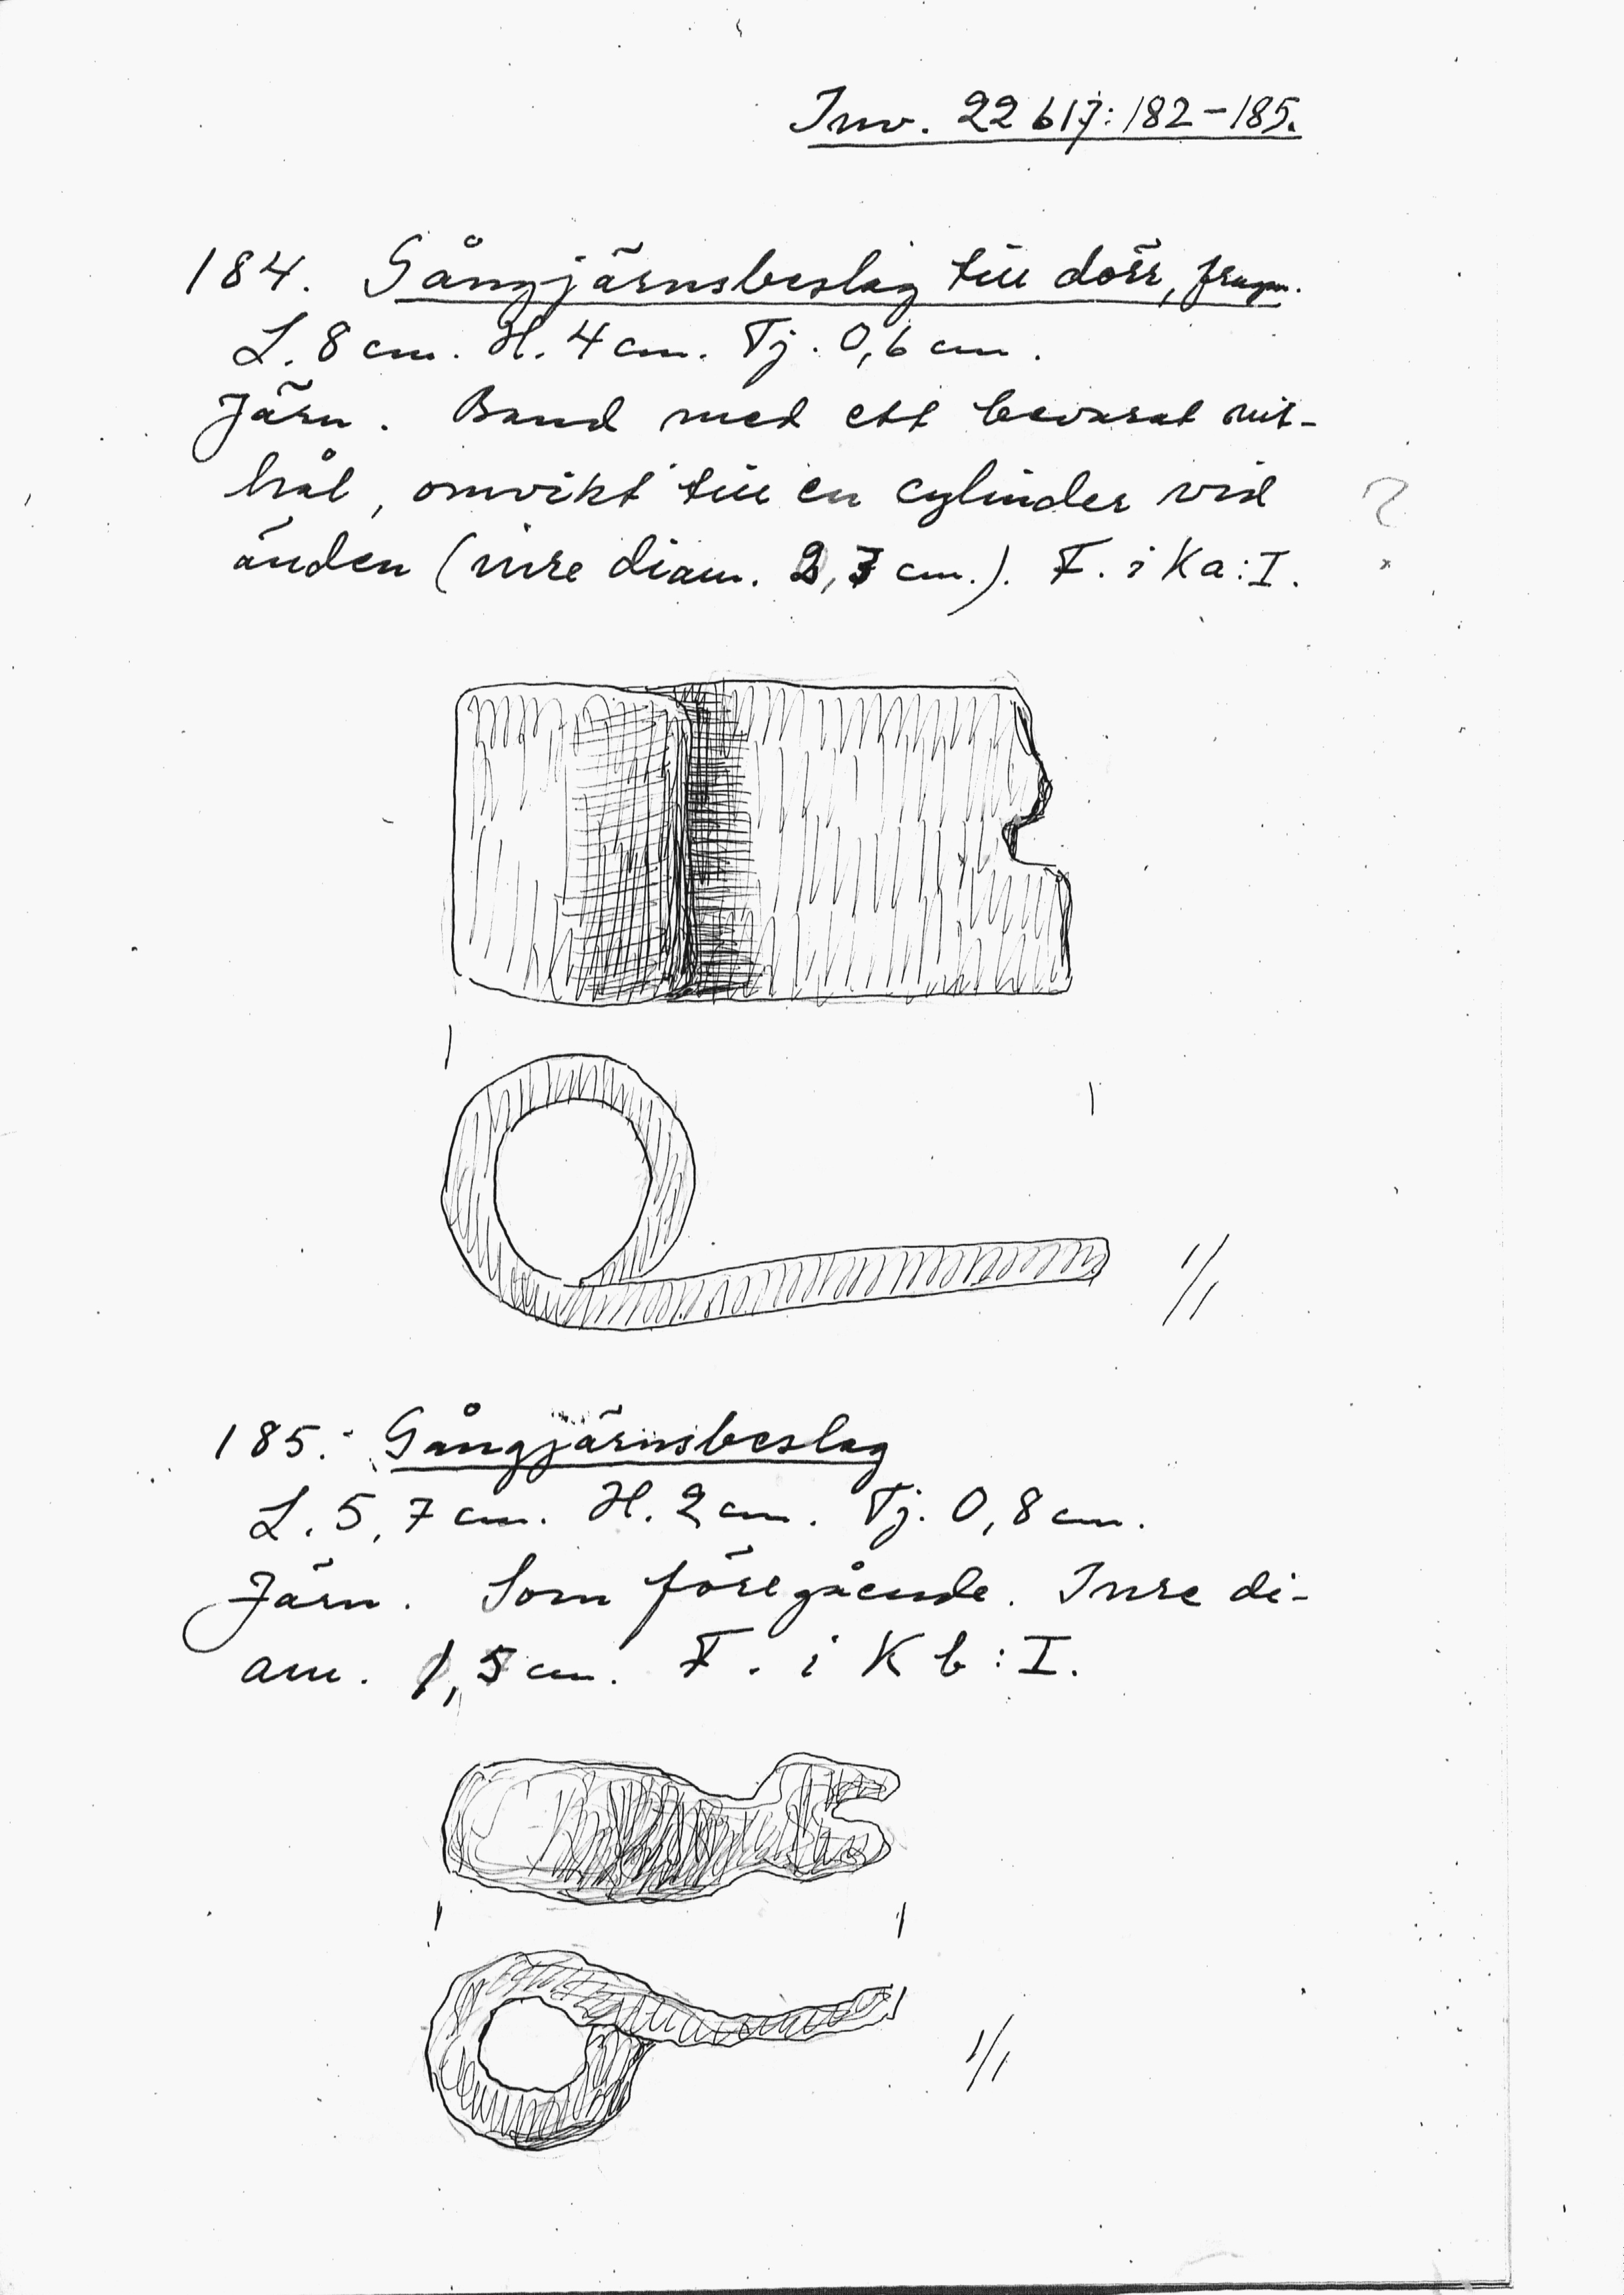 Inv. 22617:182-185.
184. Gångjärnsbeslag till dörr, fragm.
L. 8 cm. H. 4 cm. Tj. 0,6 cm.
Järn. Band med ett bevarat nit-
hål, omvikt till en cylinder vid
?
änden (inre diam. 2,3 cm.). F. i Ka:I.
1/1
185. Gångjärnsbeslag
L. 5,7 cm. H. 2 cm. Tj. 0,8 cm.
Järn. Som föregående. Inre di-
am. 1,5 cm. F. i Kb:I.
1/1